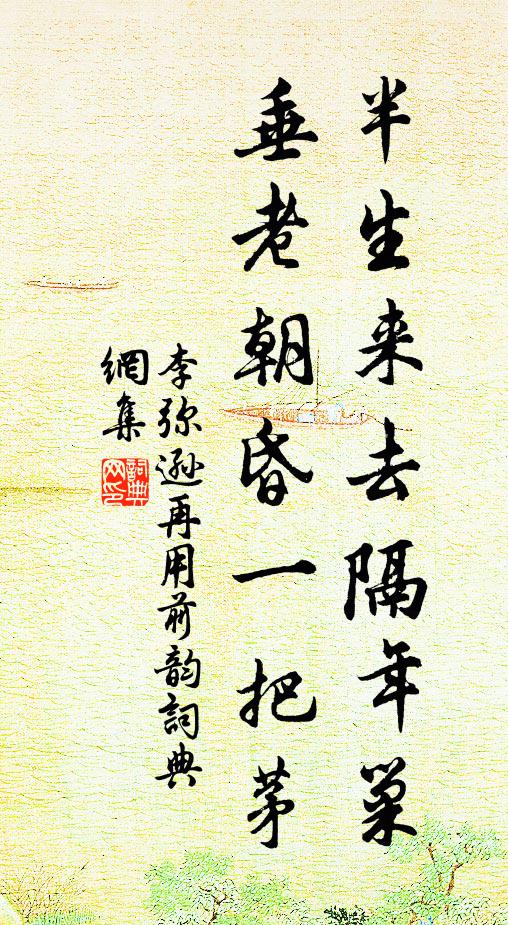 半生来去隔年巢
垂老朝昏一把茅
李弥遜再用前韵詞典
網集
詞典
网印